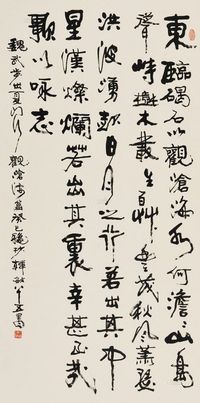 東臨碣石以觀滄海水何澹澹山島
聳峙樹木叢生百草豐茂秋風蕭瑟
洪波湧起日月之行若出其中
星漢燦爛若出其裏幸甚至哉
歌以詠志
魏武步出夏門行觀滄海篇癸巳書